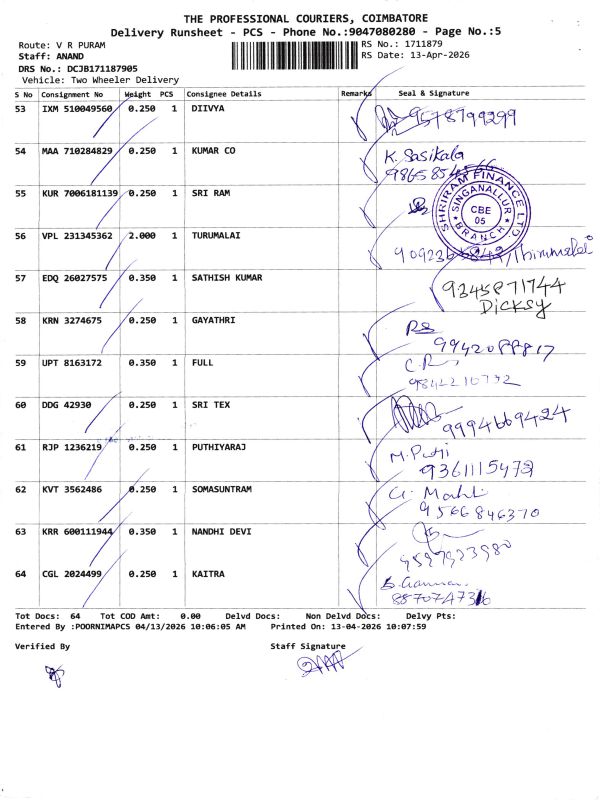 THE PROFESSIONAL COURIERS, COIMBATORE
Delivery Runsheet - PCS - Phone No.:9047080280 - Page No.:5
Route: V R PURAM
RS No.: 1711879
Staff: ANAND
RS Date: 13-Apr-2026
DRS No.: DCJB171187905
Vehicle: Two Wheeler Delivery
S No Consignment No Weight PCS Consignee Details Remarks Seal & Signature
53 IXM 510049560 0.250 1 DIIVYA
9578799299
54 MAA 710284829 0.250 1 KUMAR CO
K. Sasikala
55 KUR 7006181139 0.250 1 SRI RAM
SHRIRAM FINANCE LTD
SINGANALLUR
CBE
05
BRANCH
56 VPL 231345362 2.000 1 TURUMALAI
57 EDQ 26027575 0.350 1 SATHISH KUMAR
9345871744
Dicksy
58 KRN 3274675 0.250 1 GAYATHRI
59 UPT 8163172 0.350 1 FULL
9842210732
60 DDG 42930 0.250 1 SRI TEX
9994669424
61 RJP 1236219 0.250 1 PUTHIYARAJ
9361115472
62 KVT 3562486 0.250 1 SOMASUNTRAM
9566846370
63 KRR 600111944 0.350 1 NANDHI DEVI
9597923980
64 CGL 2024499 0.250 1 KAITRA
Tot Docs: 64 Tot COD Amt: 0.00 Delvd Docs: Non Delvd Docs: Delvy Pts:
Entered By :POORNIMAPCS 04/13/2026 10:06:05 AM Printed On: 13-04-2026 10:07:59
Verified By Staff Signature